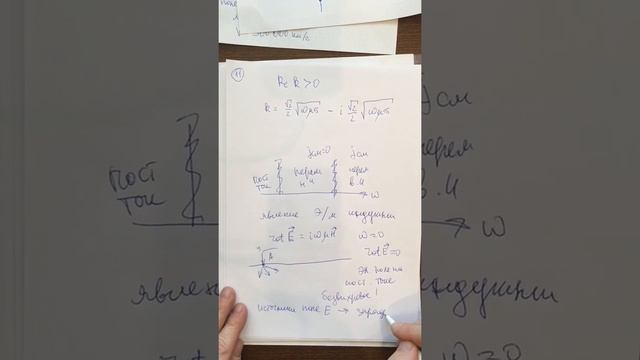 300 000 km/s
11
Re k > 0
k = √2/2 √ωμσ - i √2/2 √ωμσ
jсм=0 jсм
пост ток перем н.ч перем в.ч ω
явление э/м индукции
rot E⃗ = iωμH⃗ ω = 0
rot E⃗ = 0
эл. поле на
пост. токе
безвихревое!
источники поле E → заряд